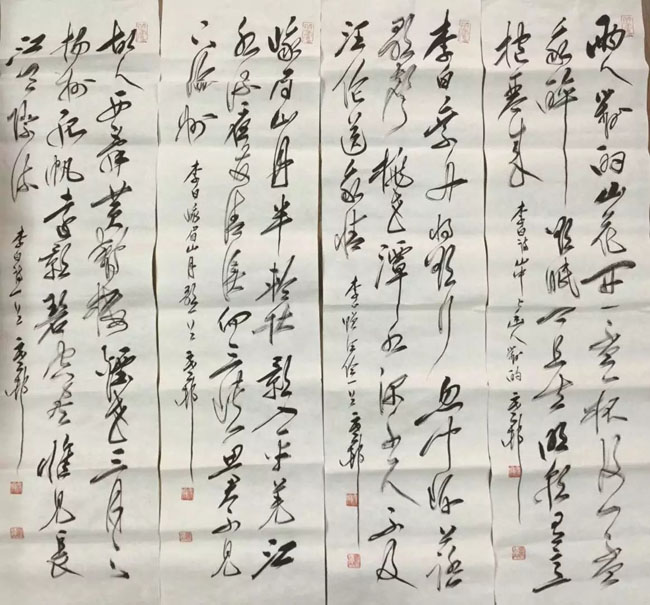 两人对酌山花开一盃一杯复一盃
我醉欲眠卿且去明朝有意
抱琴来
李白诗山中与幽人对酌
李白乘舟将欲行忽闻岸上踏
歌声桃花潭水深千尺不及
汪伦送我情
李白赠汪伦一首
峨眉山月半轮秋影入平羌江
水流夜发清溪向三峡思君不见
下渝州
李白峨眉山月歌一首
故人西辞黄鹤楼烟花三月下
扬州孤帆远影碧空尽惟见长
江天际流
李白诗一首